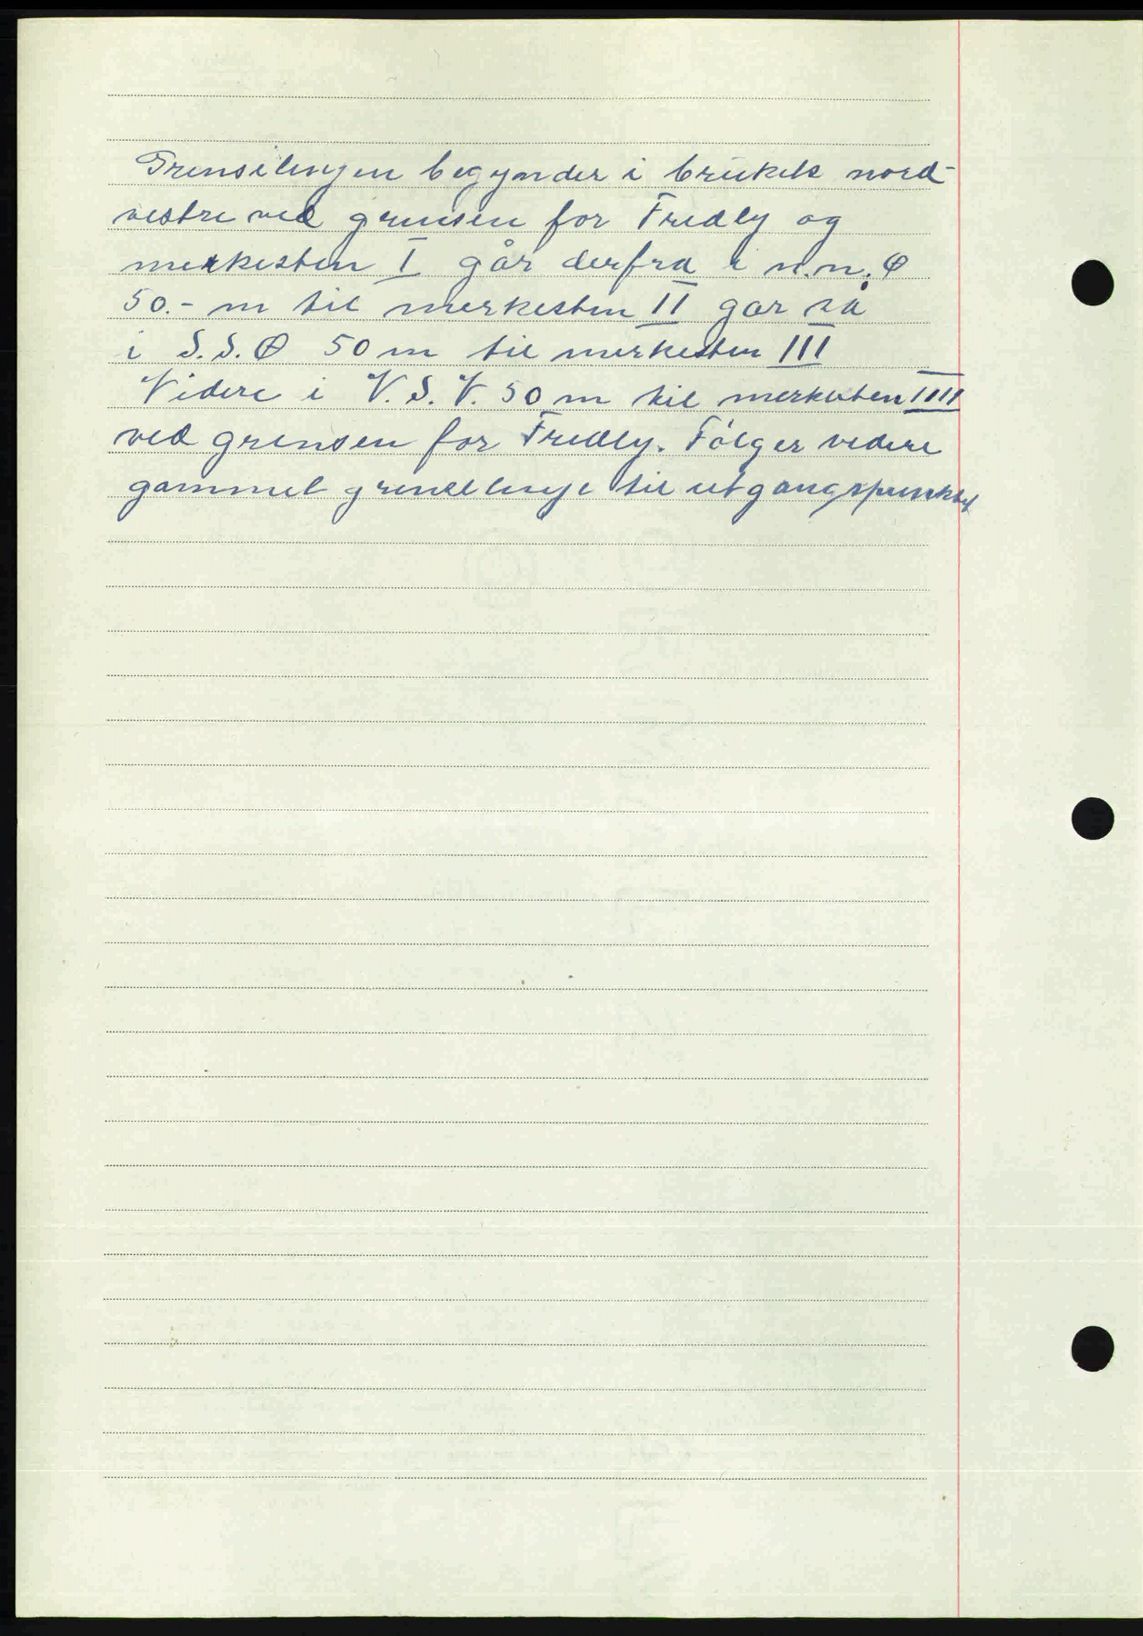 Grenselinjen begynder i brukets nord-
vestre ved grensen for Fredly og
merkesten I går derfra i n.n.Ø
50.- m til merkesten II går så
i S.S.Ø 50 m til merkesten III
Videre i V.S.V. 50 m til merkesten IIII
ved grensen for Fredly. Følger videre
gammel grenselinje til utgangspunktet